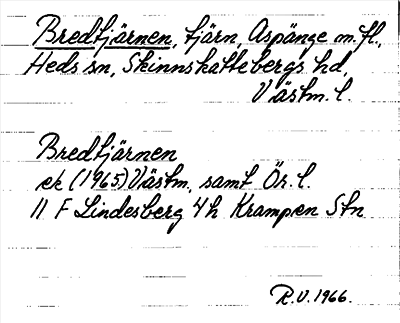 Bredtjärnen, tjärn, Aspänge m.fl.,
Heds sn, Skinnskattebergs hd,
Västm. l.
Bredtjärnen
ek (1965) Västm. samt Ör. l.
11 F Lindesberg 4h Krampen Stn
R.V. 1966.